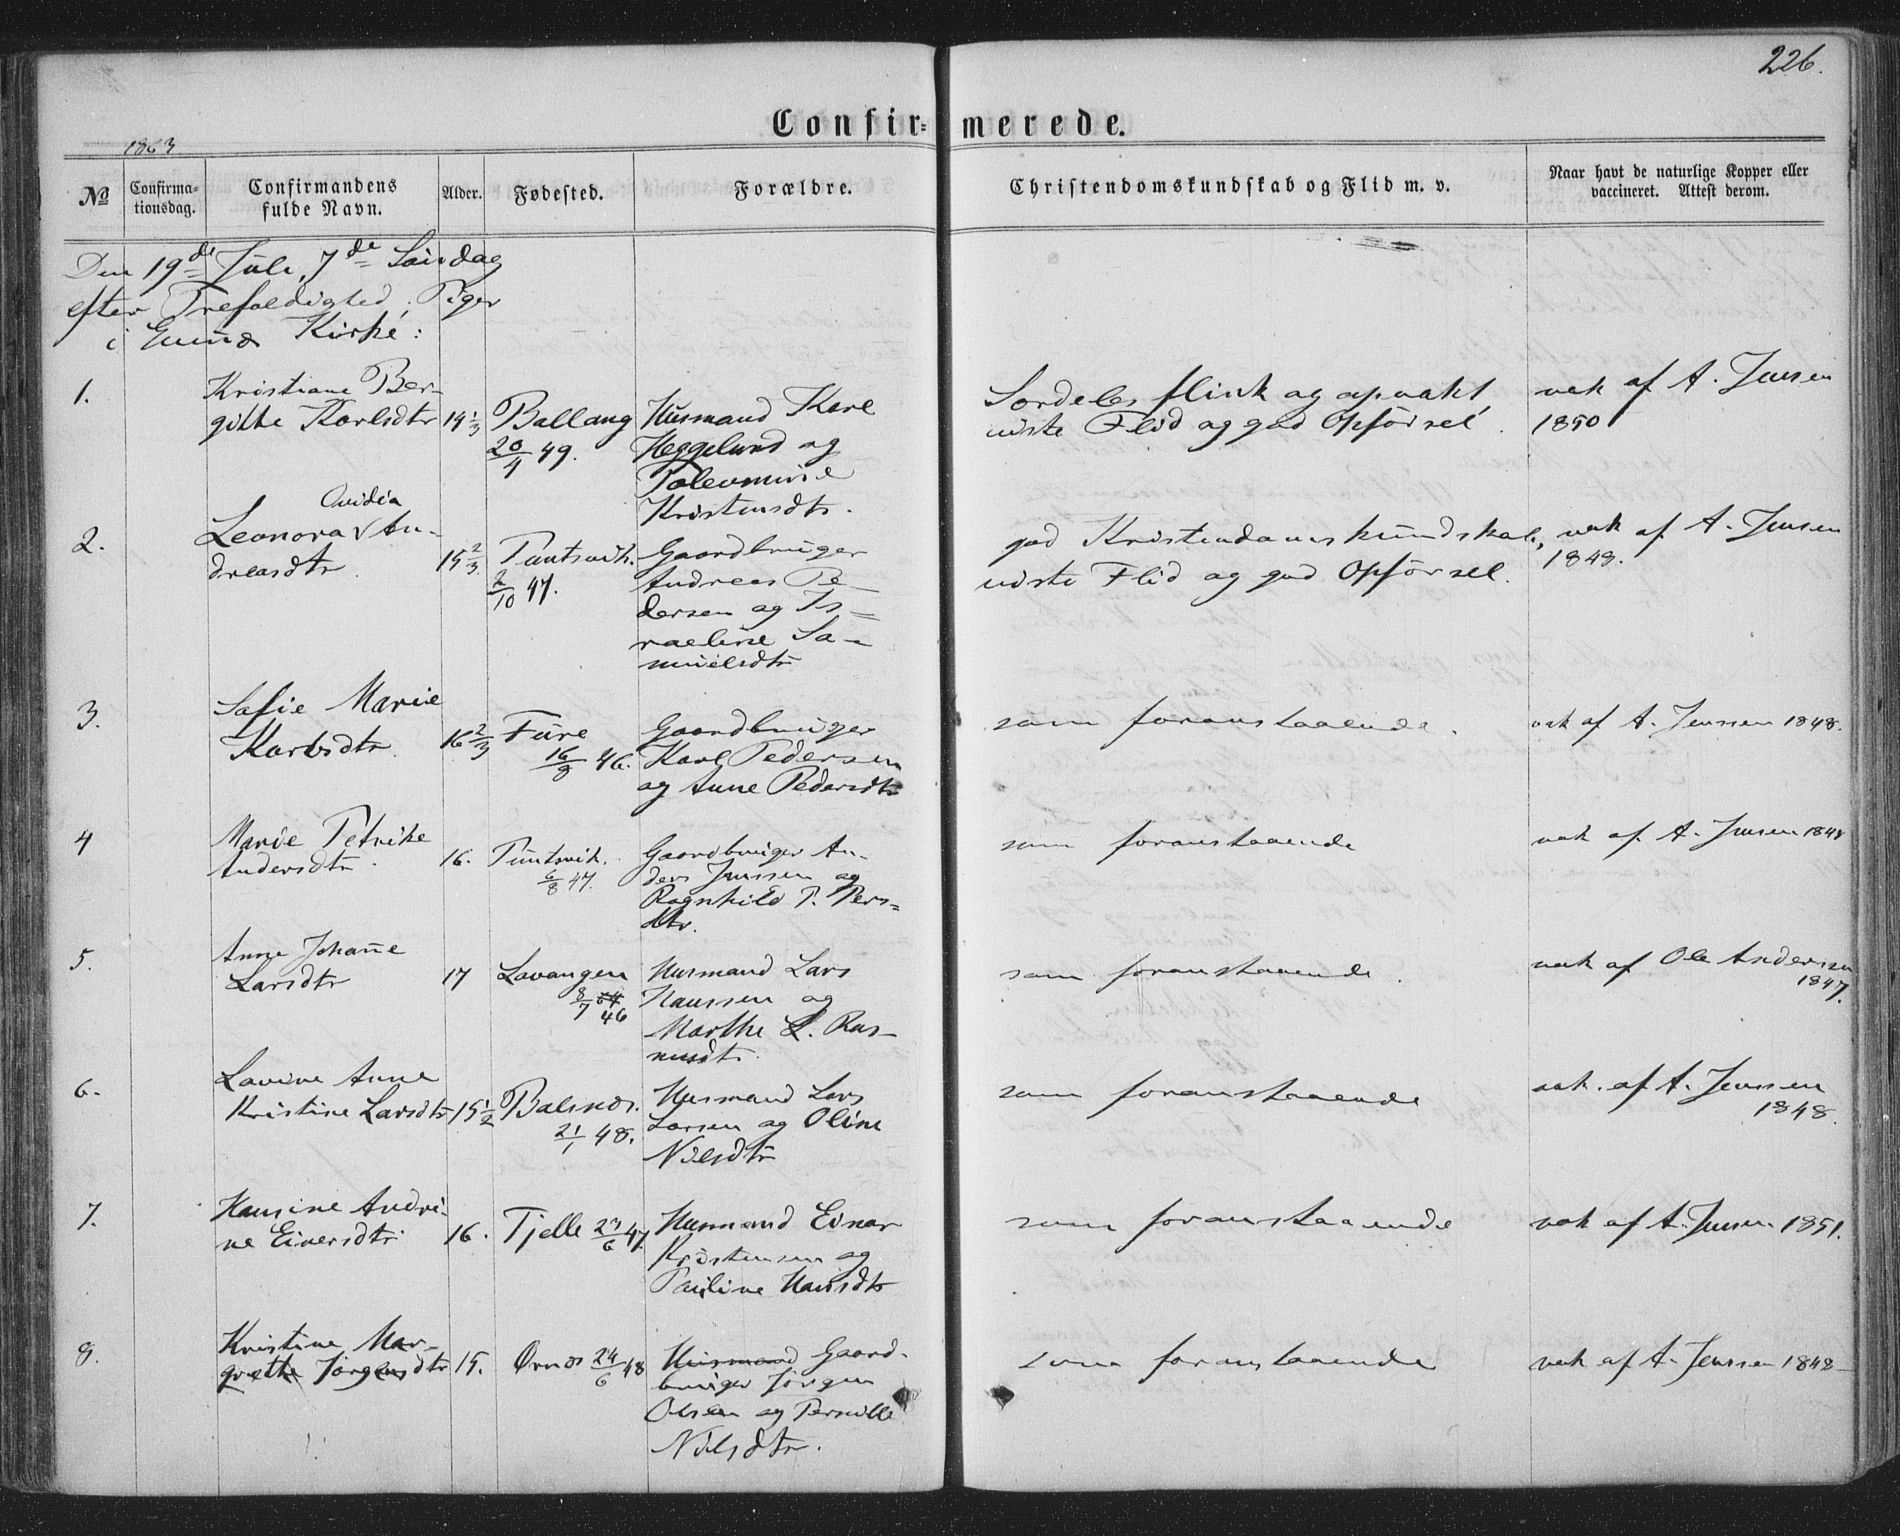 226.
Confirmerede.
1863
No
Confirmationsdag.
Confirmandens fulde Navn.
Alder.
Fødested.
Forældre.
Christendomskundskab og Flid m. v.
Naar havt de naturlige Kopper eller vaccineret. Attest derom.
Den 19de Juli, 7de Søndag
efter Trefoldighed, Piger
i Kirke:
1.
Kristiane Ber-
githe Karlsdtr
14 1/3
Ballang
20/4 49.
Husmand Karl
Heggelund og
Kristensdtr.
Særdeles flink og opvakt
udste Flid og god Opførsel.
vak af A. Jensen
1850
2.
Ovidia
Leonora v An-
dreasdtr
15 2/3
Tuntsvik.
2/10 47.
Gaardbruger
Andreas Pe-
dersen og Is-
raeline Sa-
muelsdtr
god Kristendomskundskab,
udste Flid og god Opførsel.
vak af A. Jensen
1848.
3.
Sofie Marie
Karlsdtr
16 2/3
Fure
16/9 46.
Gaardbruger
Karl Pedersen
og Anne Pedersdtr
som foranstaaende.
vak af A. Jenssen 1848.
4
Marie Petrike
Andersdtr
16.
Tuntsvik.
6/8 47.
Gaardbruger An-
ders Jenssen og
Ragnhild P. Pers-
dtr.
som foranstaaende
vak af A. Jensen 1848
5.
Anne Johanne
Larsdtr
17
Lavangen
8/7
46
Husmand Lars
Hanssen og
Marthe L. Ras-
musdtr.
som foranstaaende.
vak af Ole Andersen
1847.
6.
Lavine Anne
Kristine Larsdtr
15 1/2
Balsnes.
21/1 48.
Husmand Lars
Larsen og Oline
Nilsdtr
som foranstaaende
vak. af A. Jenssen
1848.
7.
Hansine Andri-
ne Einersdtr
16.
Tjelle 23/6 47.
Husmand Einar
Kristensen og
Pauline Hansdtr
som foranstaaende
vak af A. Jensen 1851.
8.
Kristine Mar-
grethe Jørgensdtr
15.
Ørnes 24/6 48
Husmand Gaard-
bruger Jørgen
Olsen og Pernille
Nilsdtr.
som foranstaaende
vak af A. Jenssen 1848